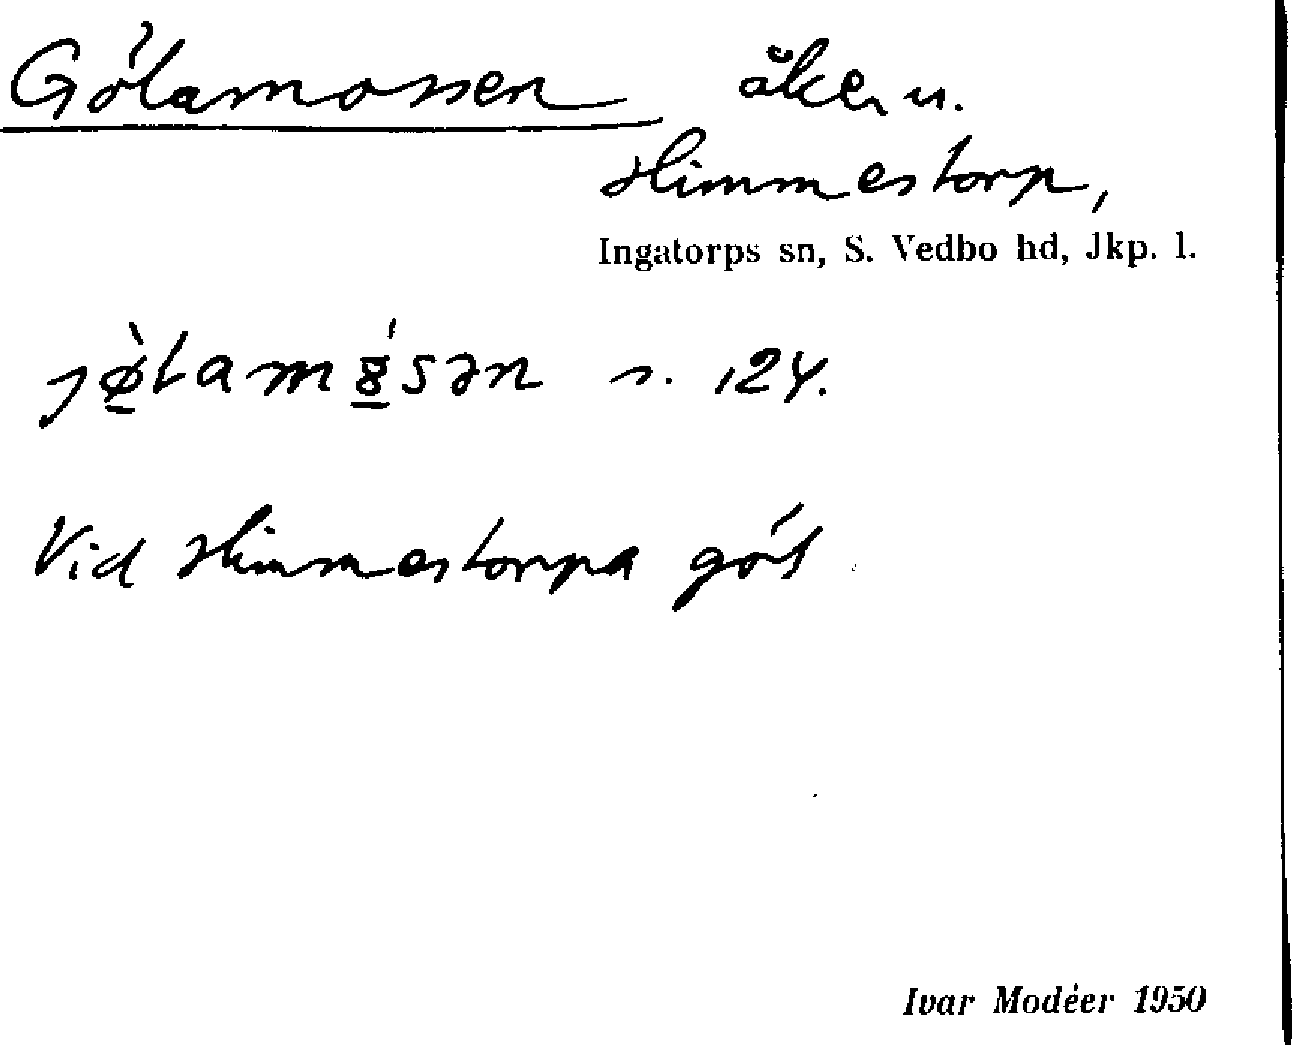 Gölamossen åker u.
Himmestorp,
Ingatorps sn, S. Vedbo hd, Jkp. l.
s. 124.
Vid Himmestorpa göl
Ivar Modéer 1950